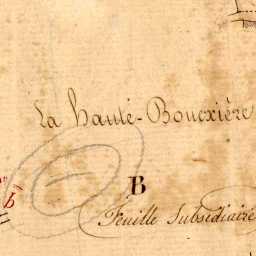 La Haute-Boucxière
B
Feuille Subsidiaire
b